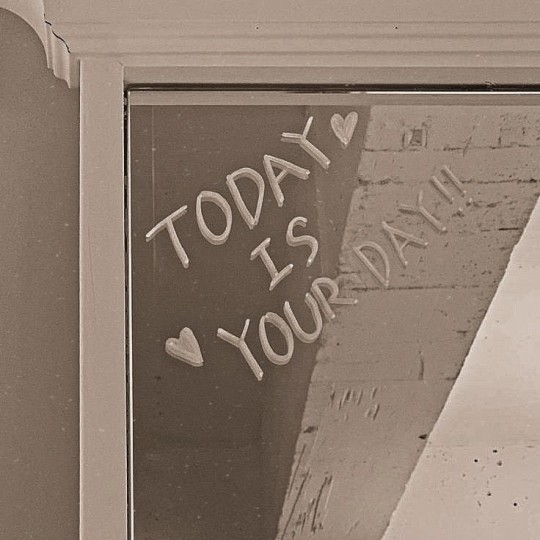 TODAY ♥
IS
♥ YOUR DAY!!